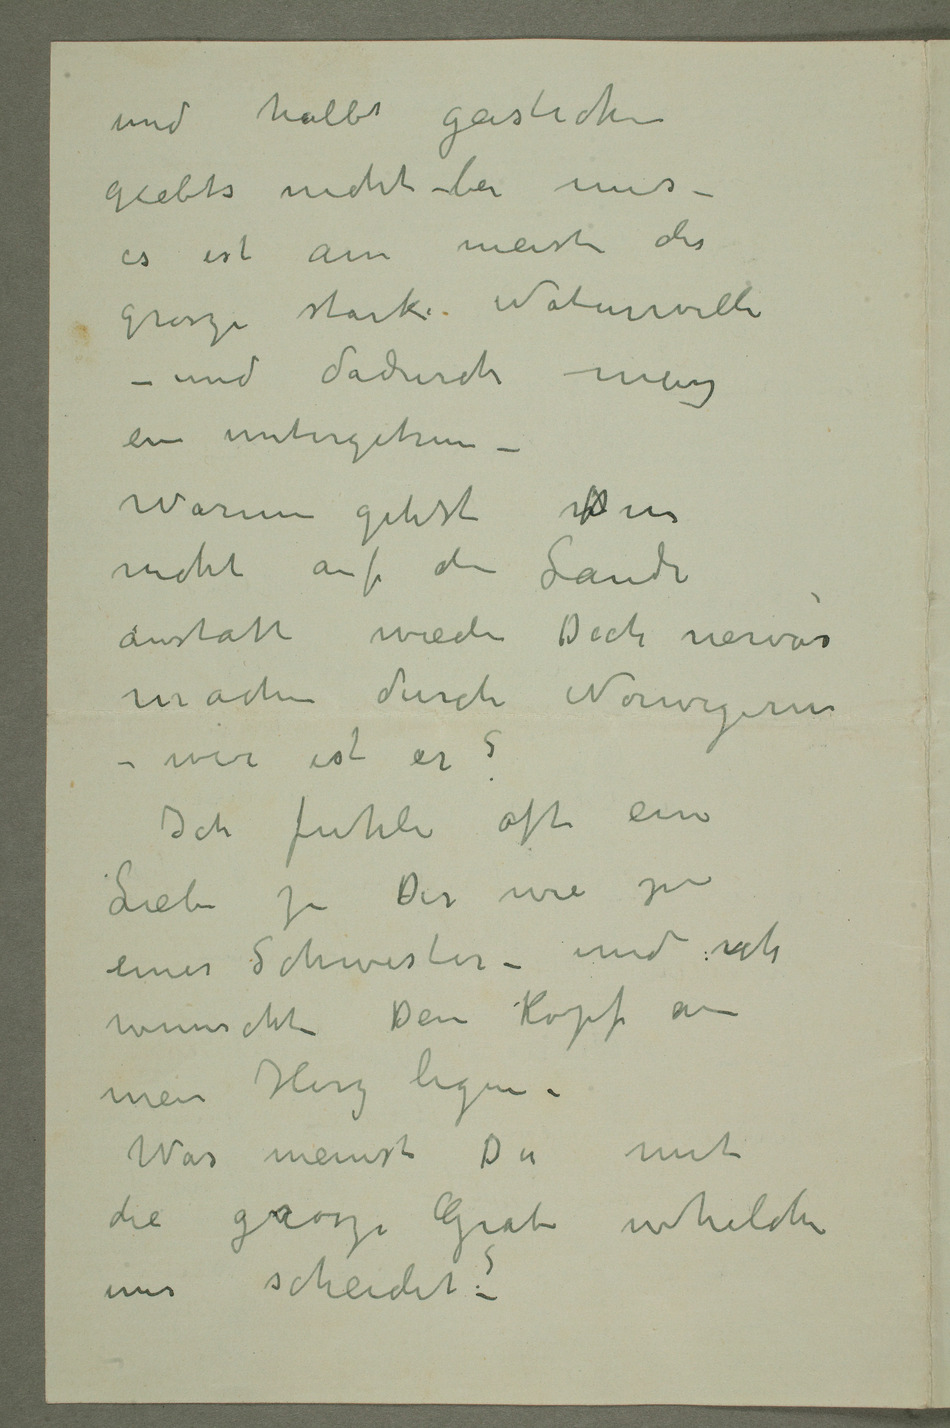 und halbt geistichen
giebts nicht – bei uns –
es ist am meisten der
grosze starke Naturwille
– und dadurch
ein untergehen –
Warum gehst Du
nicht auf den Lande
anstatt wieder Dich nervös
machen durch Norwegern
– wie ist er?
Ich fuhle oft ein
Liebe zu Dir wie zu
einer Schwester – und ich
wunschte Dein Kopf an
mein Herz legen.
Was meinst Du mit
die grosze Grabe whelche
uns scheidet? –